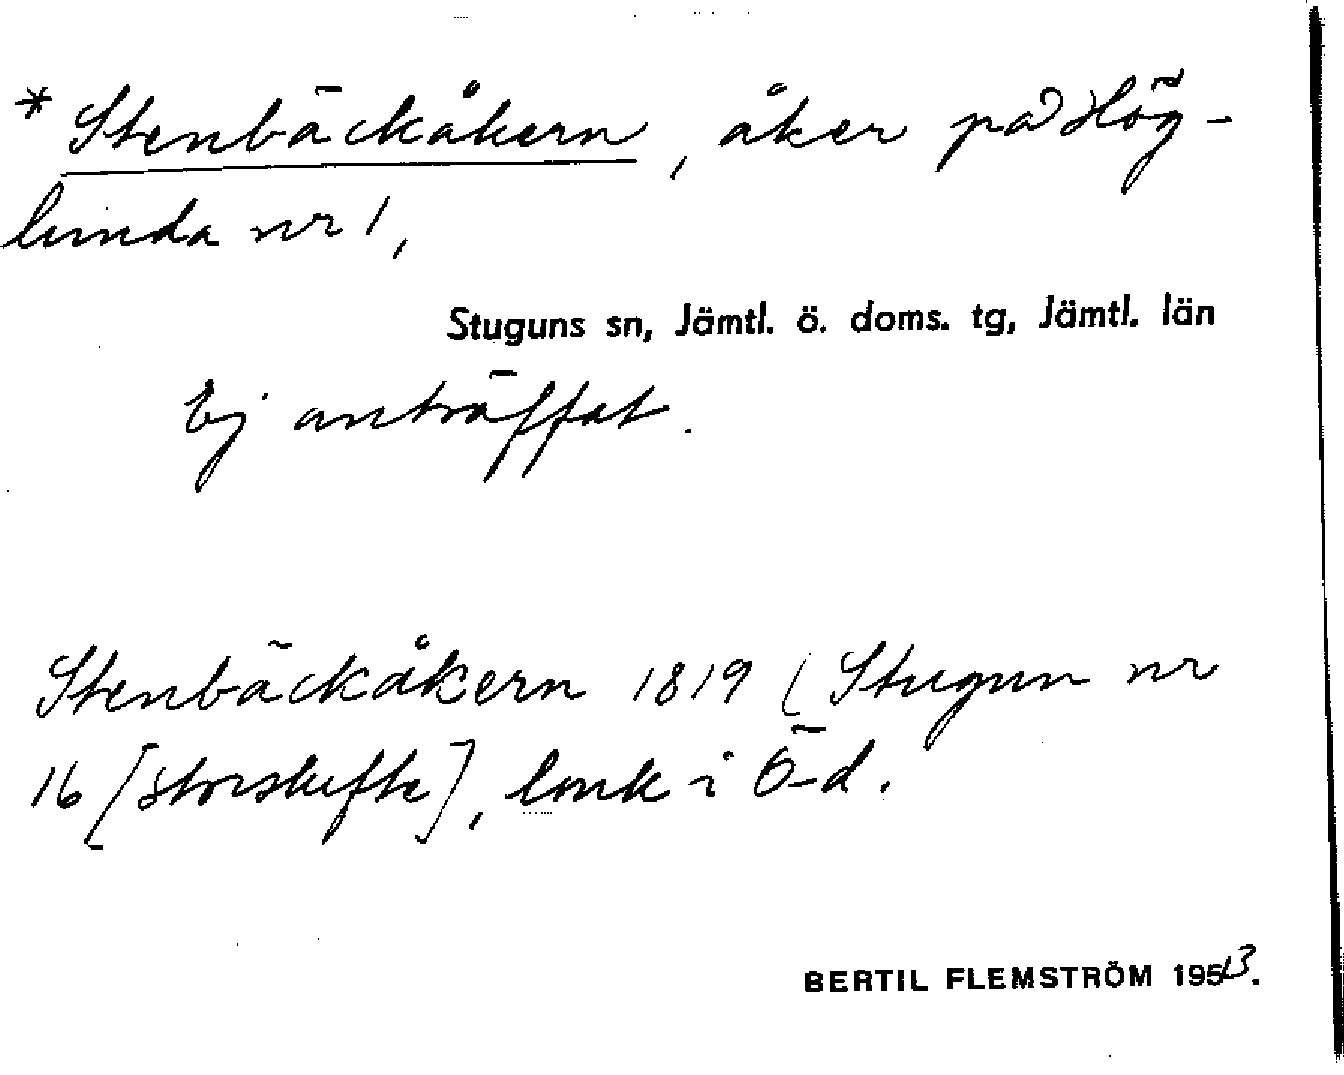 * Stenbäckåkern, åker på Hög-
lunda nr 1,
Stuguns sn, Jämtl. ö. doms. tg, Jämtl. län
Ej anträffat.
Stenbäckåkern 1819 (Stugun nr
16 [storskifte], lmk i Ö-d.
BERTIL FLEMSTRÖM 1953.